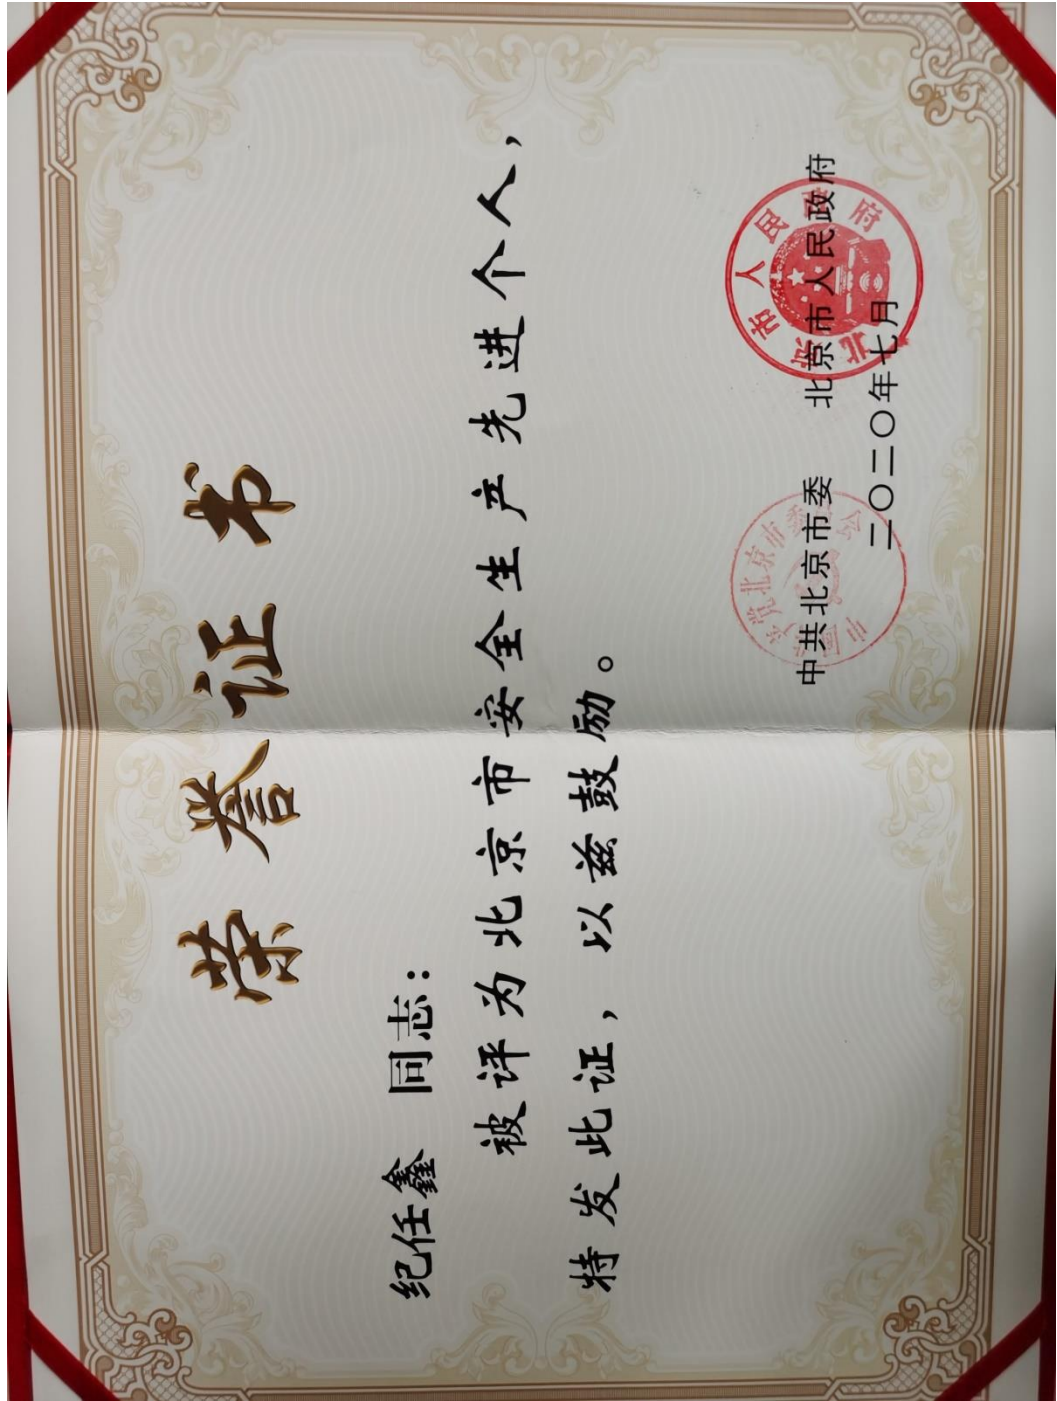 荣誉证书
纪任鑫 同志：
被评为北京市安全生产先进个人，
特发此证，以兹鼓励。
中共北京市委 北京市人民政府
二〇二〇年七月
北京市人民政府